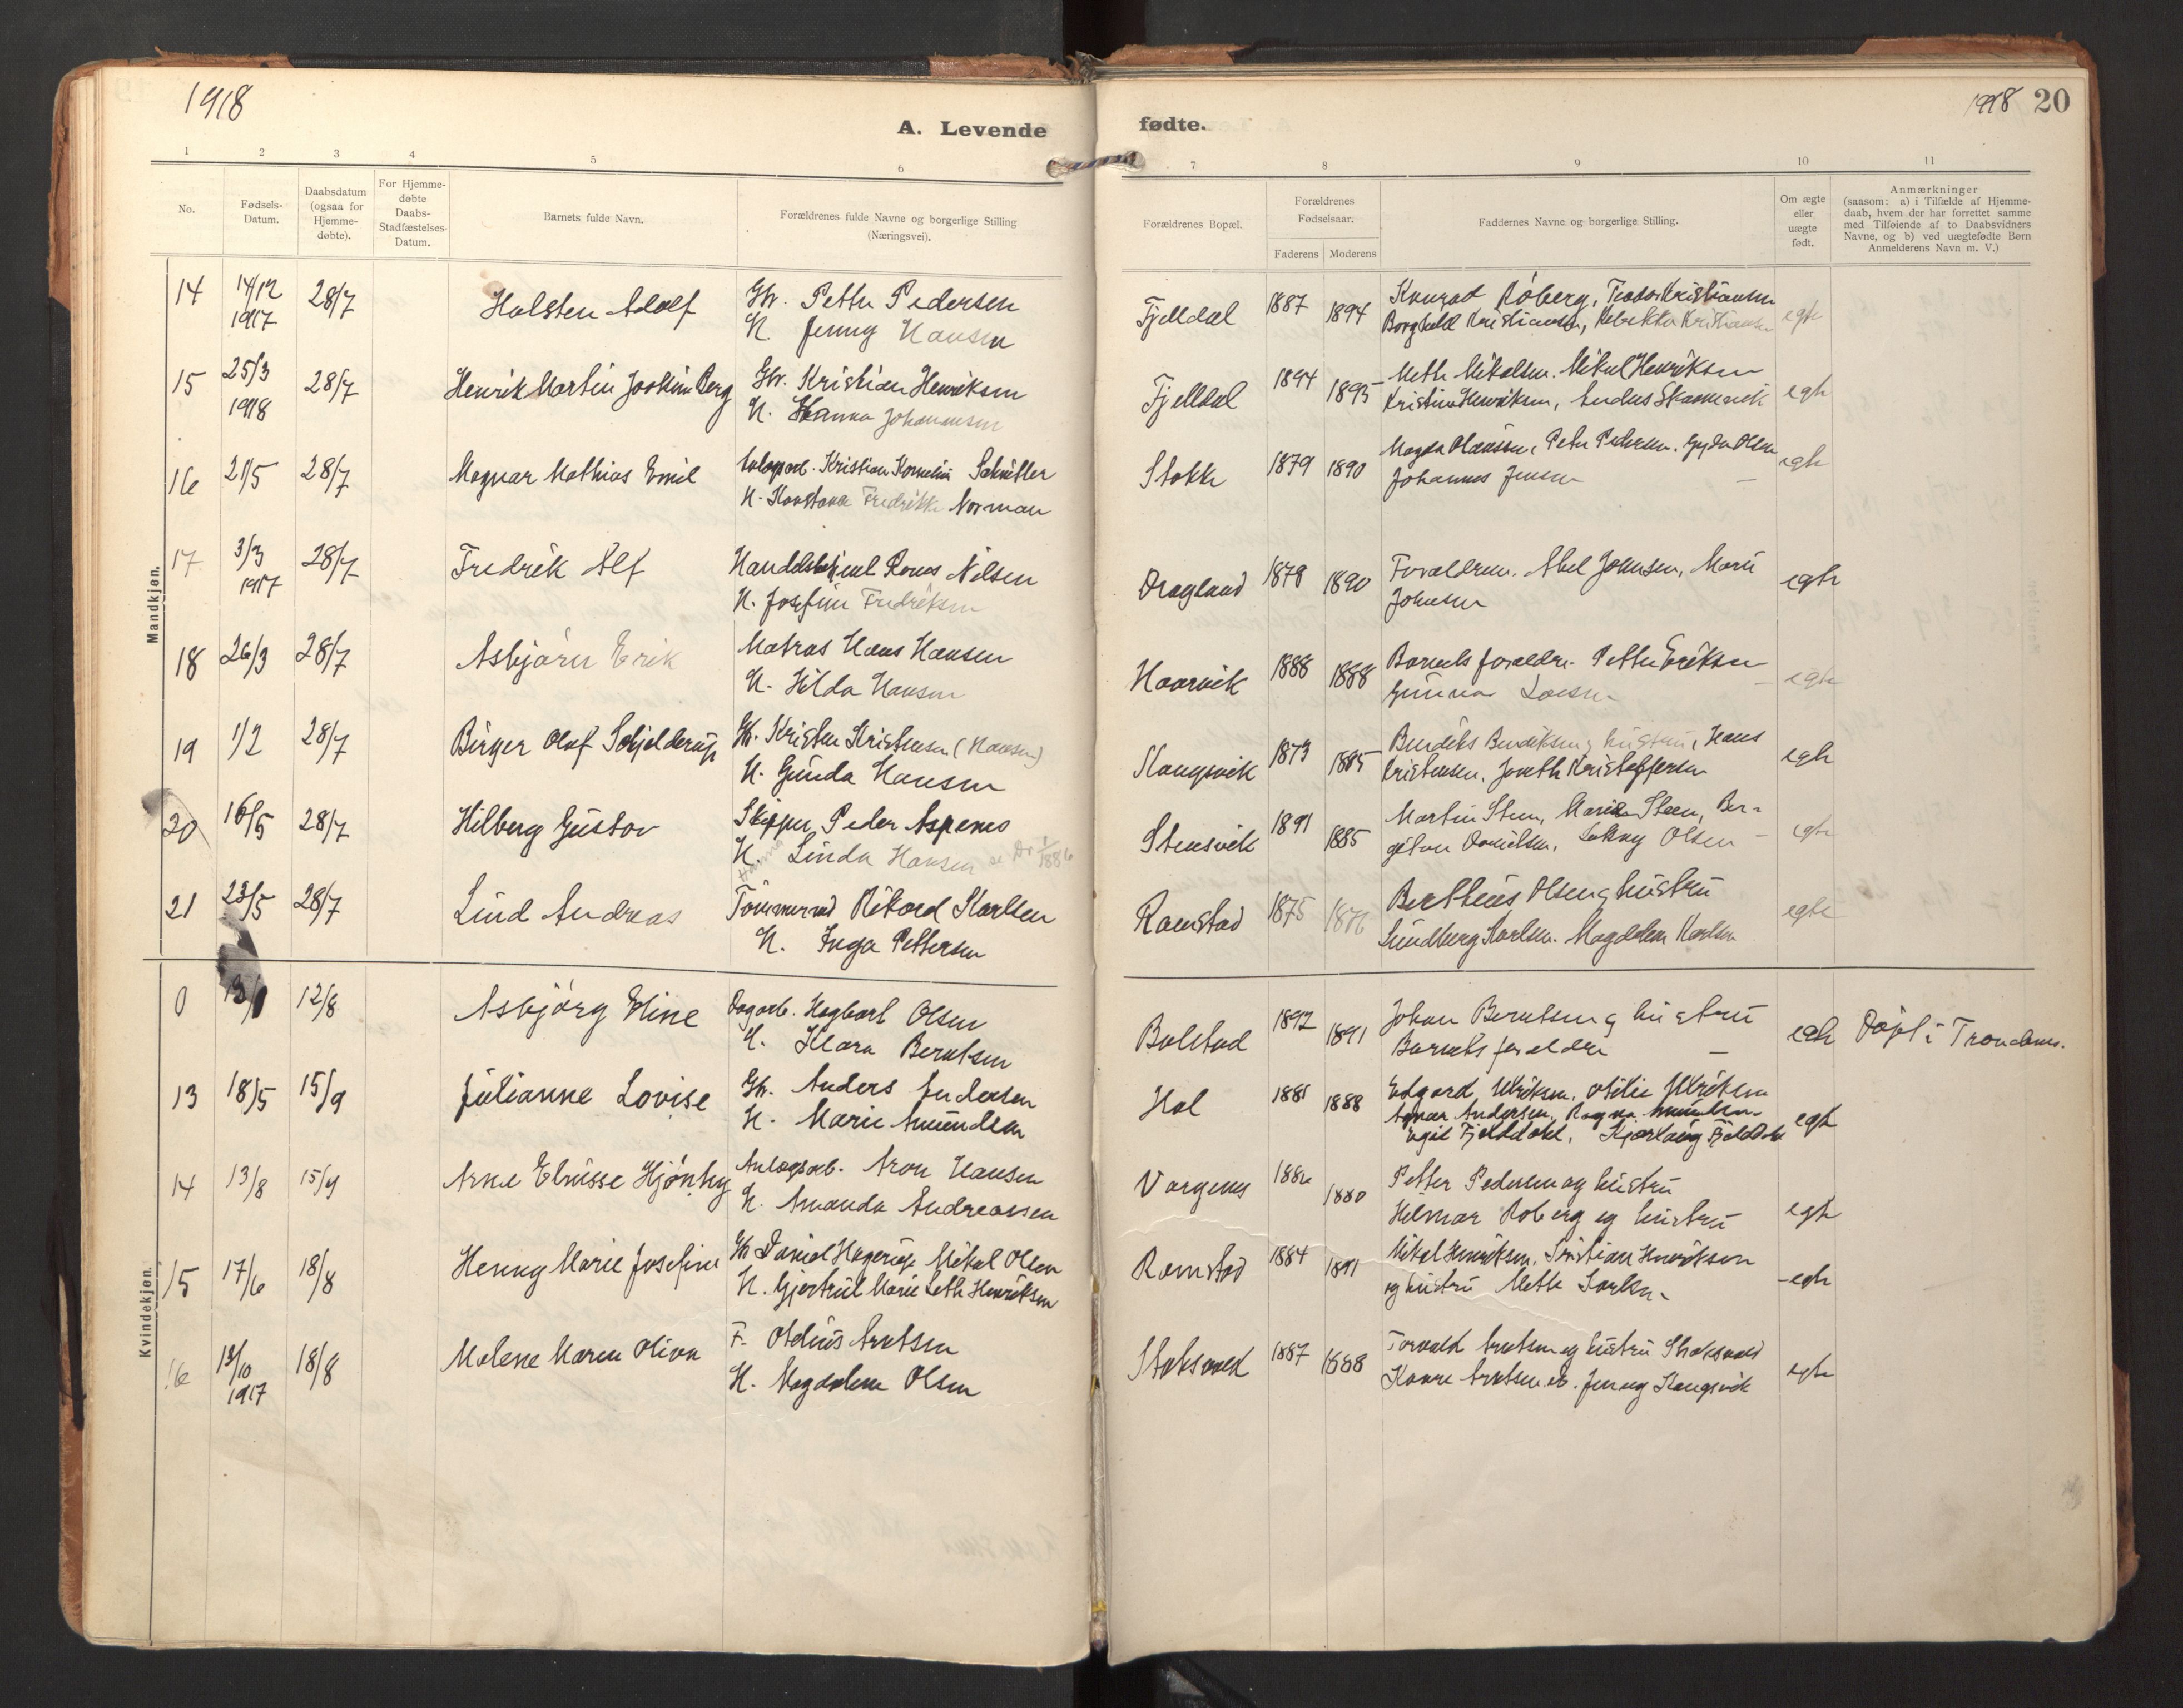 1918
A. Levende
1 2 3 4 5 6
No.
Fødsels-
Datum.
Daabsdatum
(ogsaa for
Hjemme-
døbte).
For Hjemme-
døbte
Daabs-
Stadfæstelses-
Datum.
Barnets fulde Navn.
Forældrenes fulde Navne og borgerlige Stilling
(Næringsvei).
Mandkjøn.
14 14/12 28/7 Halsten Adolf Gbr. Petter Pedersen
1917 H. Jenny Hansen
15 25/3 28/7 Henrik Martin Joakim Berg Gbr. Kristian Henriksen
1918 H. Hanna Johannesen
16 21/5 28/7 Magnar Mathias Emil Kristian Kornelius Schnitler
H. Konstance Fredrikke Norman
17 3/3 28/7 Fredrik Alf Nilsen
1917 H. Josefine Fredriksen
18 26/3 28/7 Asbjørn Erik Matros Hans Hansen
H. Hilda Hansen
19 1/2 28/7 Birger Olaf Schjelderup Gbr. Kristen Kristensen (Hansen)
H. Gunda Hansen
20 16/5 28/7 Hilberg Gustav Skipper Peder Aspenes
H. Linda Hansen
21 23/5 28/7 Lind Andreas Tömmermd Rikard Karlsen
H. Inga Pettersen
Kvindekjøn.
0 12/8 Asbjørg Eline Dagarb. Hagbart Olsen
H. Klara Berntsen
13 18/5 15/9 Julianne Lovise Gbr. Anders Andersen
H. Marie Amundsen
14 13/8 15/9 Arne Elnisse Anlægsarb. Aron Hansen
H. Amanda Andreassen
15 17/6 18/8 Henny Marie Josefine Gbr Daniel Hagerup Mikal Olsen
H. Gjertrud Marie Leth Henriksen
16 18/8 Malene Maren Oliva F. Otelius Arntsen
1917 H. Magdalene Olsen
1918 20
fødte.
7 8 9 10 11
Forældrenes Bopæl.
Forældrenes
Fødselsaar.
Faderens Moderens
Faddernes Navne og borgerlige Stilling.
Om ægte
eller
uægte
født.
Anmærkninger
(saasom: a) i Tilfælde af Hjemme-
daab, hvem der har forrettet samme
med Tilføiende af to Daabsvidners
Navne, og b) ved uægtefødte Børn
Anmelderens Navn m. V.)
Fjelldal 1887 1894 Konrad Röberg, Teodor Kristiansen
Borghild Kristiansen, Rebekka Kristiansen egte
Fjelldal 1894 1895 Meth Mikalsen. Mikal Henriksen
Kristine Henriksen, Anders egte
Stokke 1879 1890 Magda Hanssen, Peter Pedersen. Gyda Olsen
Johannes Jensen egte
Dragland 1878 1890 Forældrene. Abel Johnsen, Marie
Johnsen egte
Haarvik 1888 1888 Barnets forældre. Petter Eriksen
Gunnar Larsen egte
Kongsvik 1873 1885 Bendiks Bendiksen og hustru, Hans
Kristensen, Kristoffersen egte
Stensvik 1891 1885 Martin Steen, Marie Steen, Ber-
Danielsen, Olsen egte
Ramstad 1875 1876 Bertheus Olsen og hustru
Lundberg Karlsen. Magdalene Karlsen egte
Bolstad 1892 1891 Johan Berntsen og hustru
Barnets forældre egte Döpt i Trondenes.
Hol 1881 1888 Edgard Ulriksen, Otilie Ulriksen
Agnar Andersen, Ragna Amundsen
Egil Fjelldahl, Kjærlaug Fjelldahl egte
Vargenes 1886 1880 Petter Pedersen og hustru
Hilmar Roberg og hustru egte
Ramstad 1884 1891 Mikal Henriksen, Kristian Henriksen
og hustru Mette Karlsen egte
Staksvold 1887 1888 Torvald Arntsen og hustru Staksvold
Kaare Arntsen. Jenny Kongsvik egte